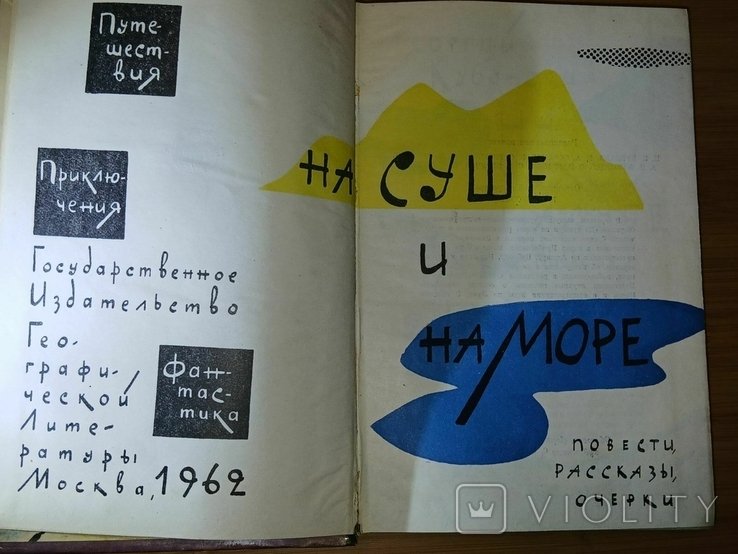 Путе-
шест-
вия
Приклю-
чения
Государственное
Издательство
Гео-
графи-
ческой
Лите-
ратуры
Москва, 1962
Фан-
тас-
тика
НА СУШЕ
и
НА МОРЕ
ПОВЕСТИ,
РАССКАЗЫ,
ОЧЕРКИ
VIOLITY